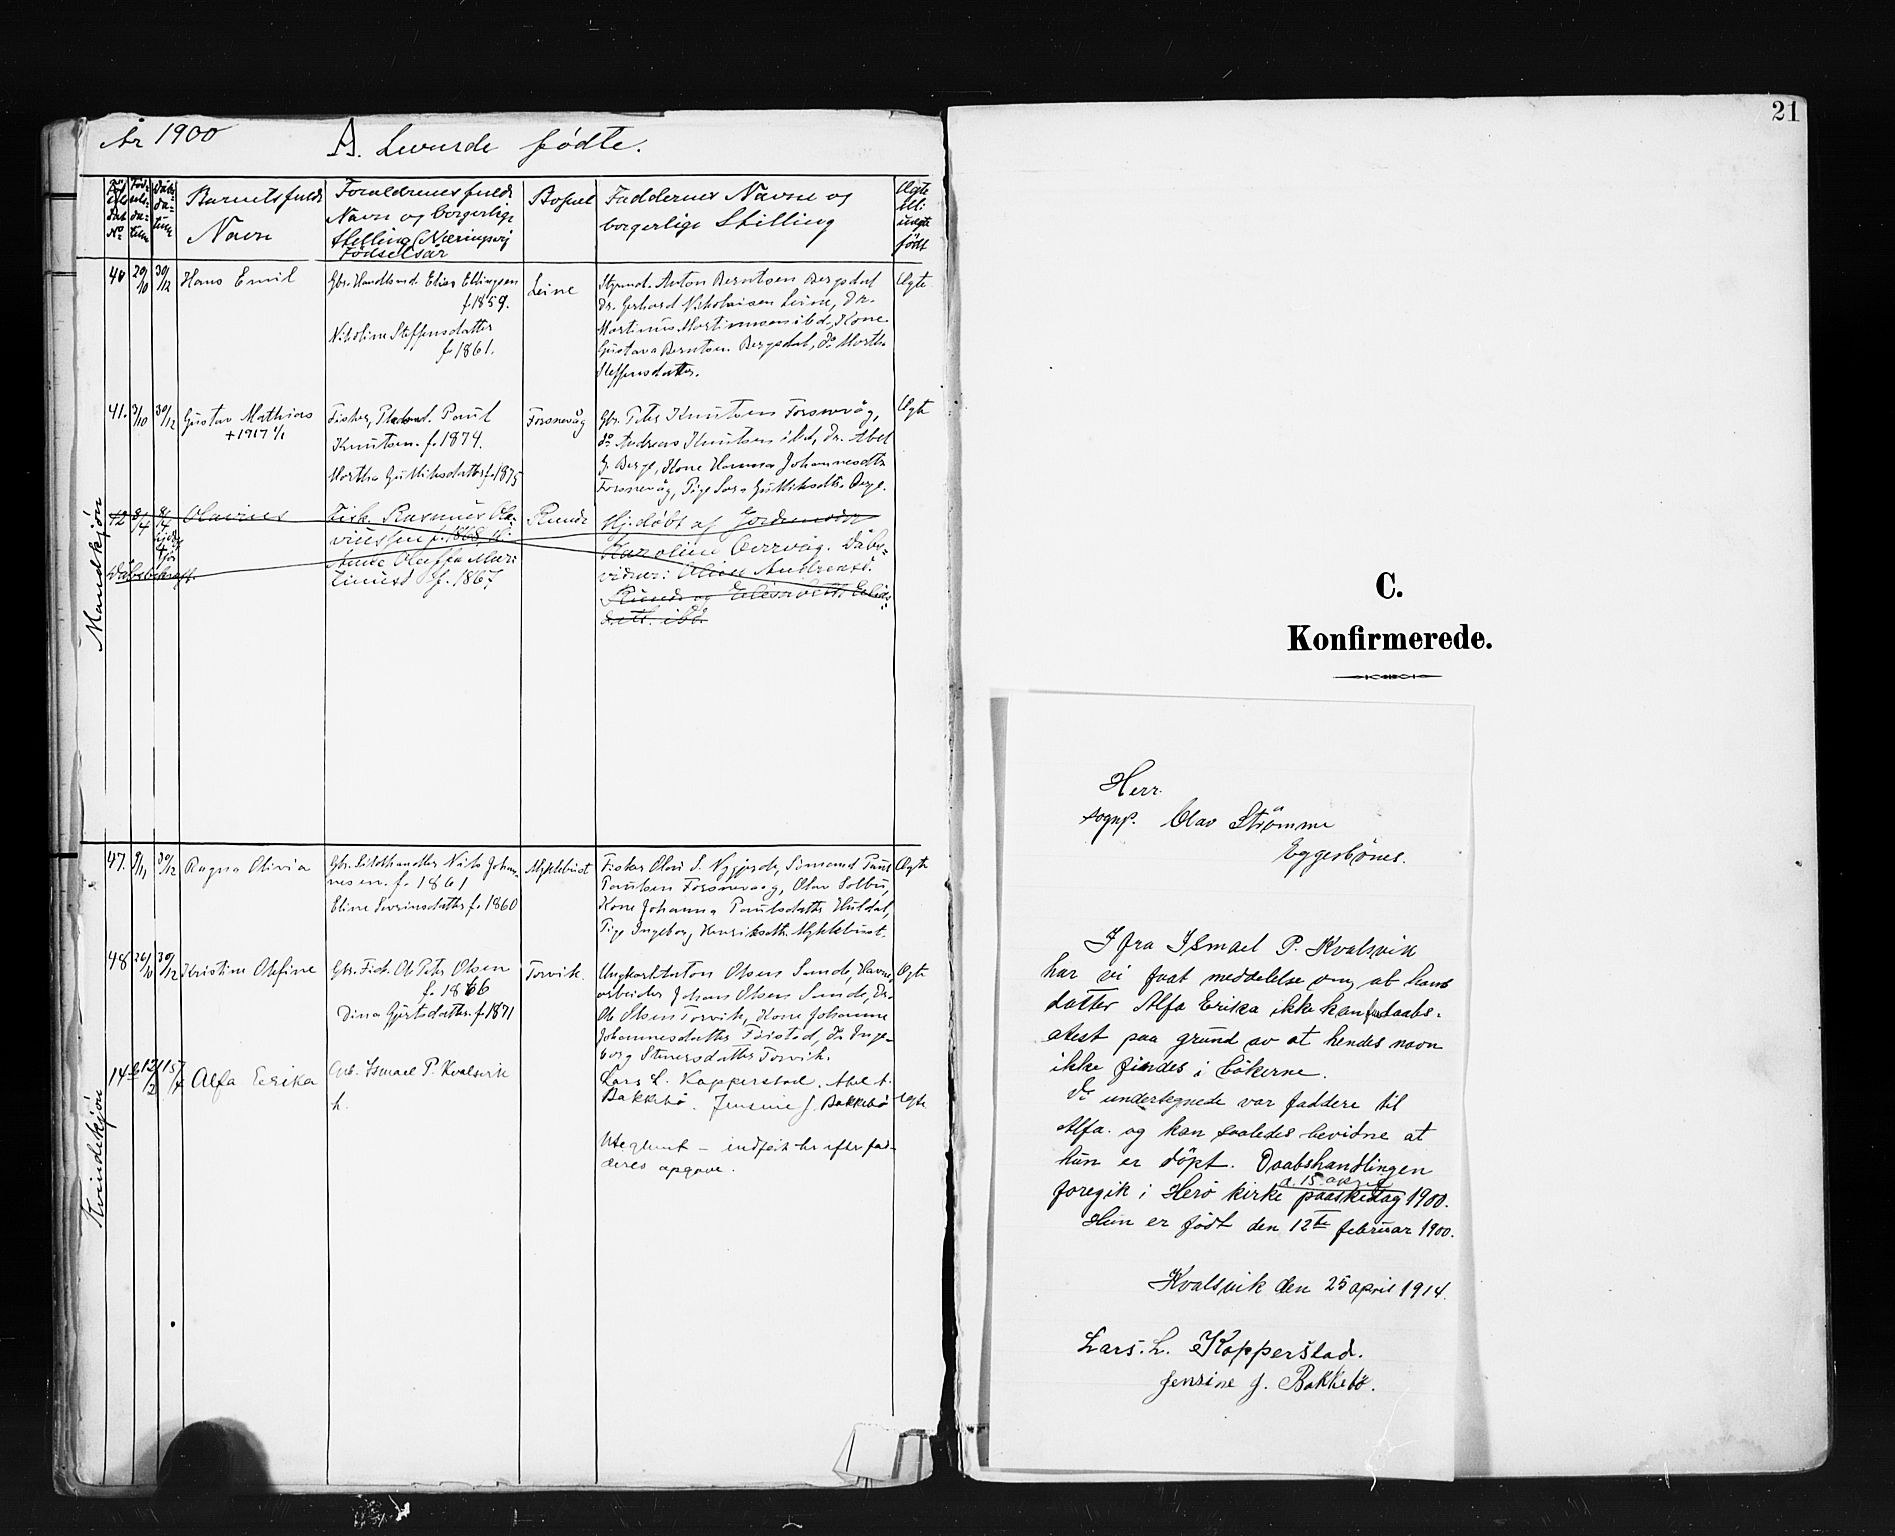 År 1900
A. Levende fødte.
Döbs-
da-
tum
Barnets fulde
Navn
Forældrenes fulde
Navn og borgerlige
Stilling (Næringsvej
Fødselsår
Bopæl
Faddernes Navne og
borgerlige Stilling
Ægte
ell.
uægte
født
Mandkjön
40 29/10 30/12 Hans Emil
Gbr. Handlsmd. Elias Ellingsen
f. 1859.
Nikoline Steffensdatter
f. 1861.
Leine
Anton Berntsen Bergsdal
Do. Gerhard Nikolaisen Leine, Do.
Martinus Martinussen ibd, Kone
Gustava Berntsen Bergsdal, Do Marthe
Steffensdatter.
Ægte
41. 3/10 30/12 Gustav Mathias
+ 1917
Fisker, Paul
Knutsen f. 1874.
Martha Gulliksdatter f. 1875
Forsnevåg
Gbr. Peter Knutsen Forsnevåg,
do Andreas Knutsen ibd, Do. Abel
J. Berge, Kone Hanna Johannesdtr
Forsnevåg, Pige Sara Gulliksdtr. Berge.
Ægte
42 8/4 Olavius
Fisk. Rasmus Ola-
viussen f. 1868,
Anne Oluffa Mar-
tinusd. f. 1867
Runde
Hj.døbt af Jordemoder
Karoline Dåbs-
vidner: Oline Andreasd.
Runde og
datt. ibd.
Kvindekjön
47. 9/11 30/12 Ragna Olivia
Gbr. Nils Johan-
nesen. f. 1861
Eline Sverinsdatter f. 1860
Myklebust
Fisker Olai S. Simund Paul
Paulsen Forsnevaag, Olav Solbu,
Kone Johanna Paulsdatter Huldal,
Pige Ingeborg Henriksdtr. Myklebust.
Ægte
48 26/10 30/12 Kristine Olefine
Gbr. Fisk. Ole Peter Olsen
f. 1866
Dina Gjertsdatter f. 1871
Torvik.
Ungkarl Anton Olsen Sande, Havne-
arbeider Johan Olsen Sande, Do.
Ole Olsen Torvik, Kone Johanne
Johannesdatter Frøistad, Do Inge-
borg Torvik.
Ægte
14 b 12/2 15/4 Alfa Erika
Gbr. Ismael P. Kvalsvik
h.
Lars L. Kopperstad, Abel A.
Bakkebø. Jensine J. Bakkebø
Uteglemt – indført her efter fad-
deres opgave.
Ægte
21
C.
Konfirmerede.
Herr.
sognp. Olav Strömme
Eggesbönes.
I fra Ismael P. Kvalsvik
har vi faat meddelelse om, at hans
datter Alfa Erika ikke kan faa daabs-
atest paa grund av at hendes navn
ikke findes i bökerne.
Vi undertegnede var faddere til
Alfa. og kan saaledes bevidne at
hun er döpt. Daabshandlingen
d. 15. april
foregik i Herö kirke paaskedag 1900.
Hun er född den 12te februar 1900.
Kvalsvik den 25 april 1914.
Lars. L. Kopperstad.
Jensine J. Bakkebø.